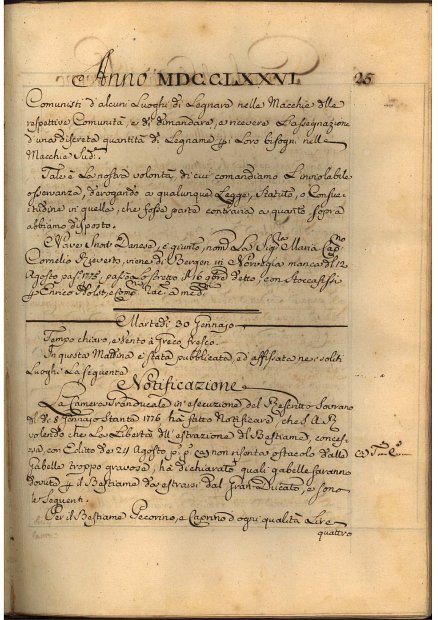 Anno MDCCLXXVI. 25
Comunisti d'alcuni Luoghi di Legnara nelle Macchie delle
respettive Comunità, e di dimandare, e ricevere L'assegnazione
d'una discreta quantità di Legname p i Loro bisogni nelle
Macchie Sud:
Tale è La nostra volontà, di cui comandiamo L'inviolabile
osservanza, derogando a qualunque Legge, Statuto, o Consue-
tudine in quella, che fosse parte contraria a quanto sopra
abbiamo disposto.
Nave Danese, è giunto, nom La Maria Cap
Cornelio viene di Bergen in Norvegia manca di 12
Agosto pas: 1775, passò Lo stretto il 16 detto, con Stoccafissi
p Enrico
Martedì 30 Gennajo
Tempo chiaro, e vento à Greco fresco.
In questa Mattina è stata pubblicata, ed affissata ne i soliti
Luoghi La seguente
Notificazione
La Camera Granducale in esecuzione del Rescritto Sovrano
del di 8 Gennajo Stante 1776 hà fatto Notificare, che S A R
volendo che La Libertà dell'estrazione del Bestiame, conces-
sa, con Editto de 28 Agosto p: p: non risenta ostacolo dalle
Gabelle troppo gravose, ha dichiarato quali gabelle saranno
dovute p il Bestiame da estraersi dal Gran Ducato, e sono
le seguenti.
Per il Bestiame Pecorino, e Caprino d'ogni qualità Lire
quattro